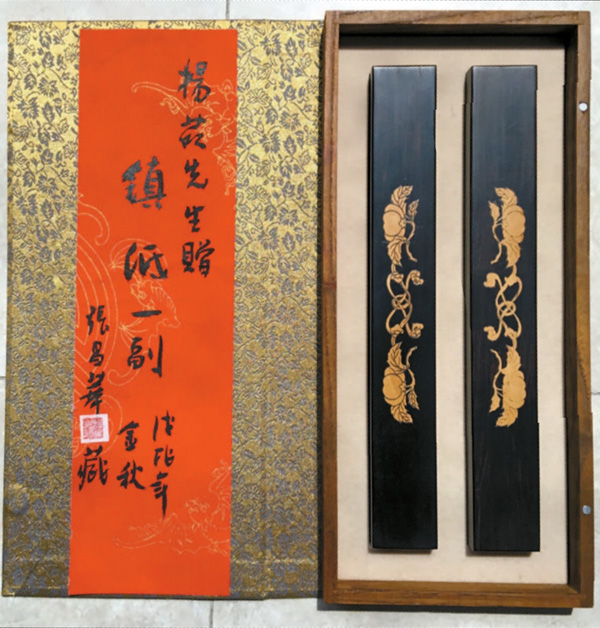 楊苡先生贈
鎮纸一副
戊戌年
金秋
張昌華藏